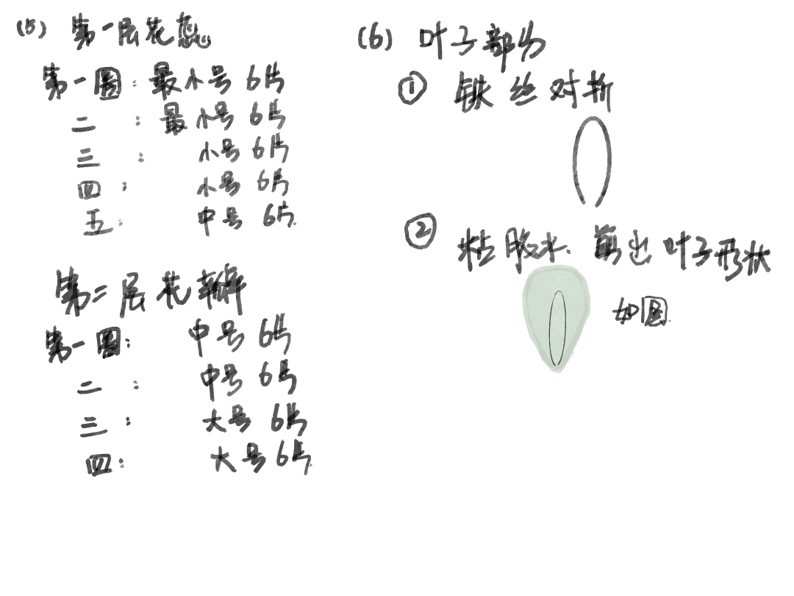 (5) 第一层花蕊
第一圈：最小号 6片
二：最小号 6片
三：小号 6片
四：小号 6片
五：中号 6片.
第二层花瓣
第一圈：中号 6片
二：中号 6片
三：大号 6片
四：大号 6片.
(6) 叶子部分
① 铁丝对折
② 粘胶水.剪出叶子形状
如图.